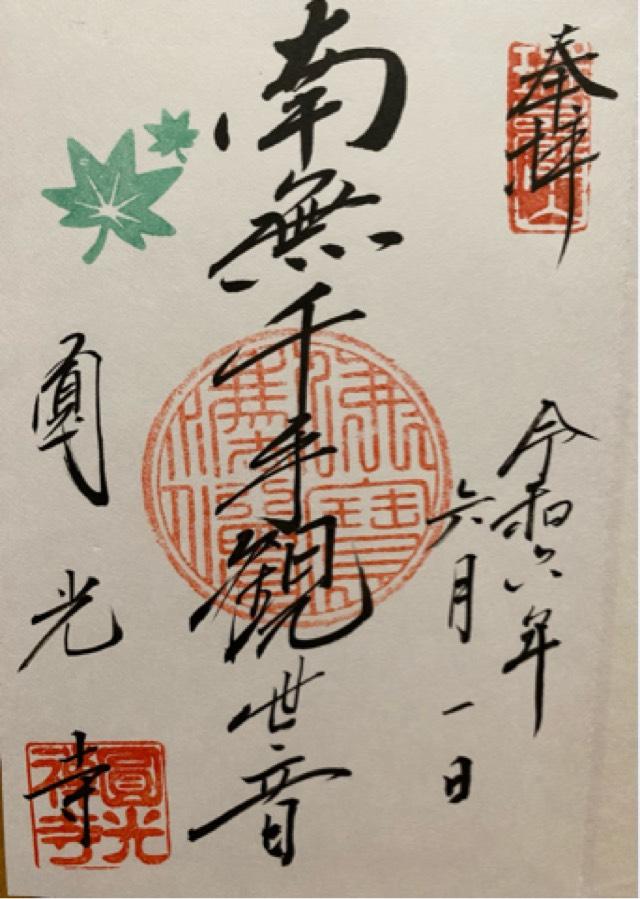 奉拝
令和六年
六月一日
南無千手観世音
圓光寺
圓光
禅寺